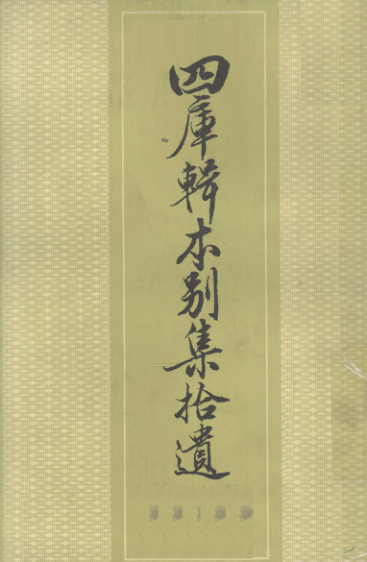 四庫輯本别集拾遺